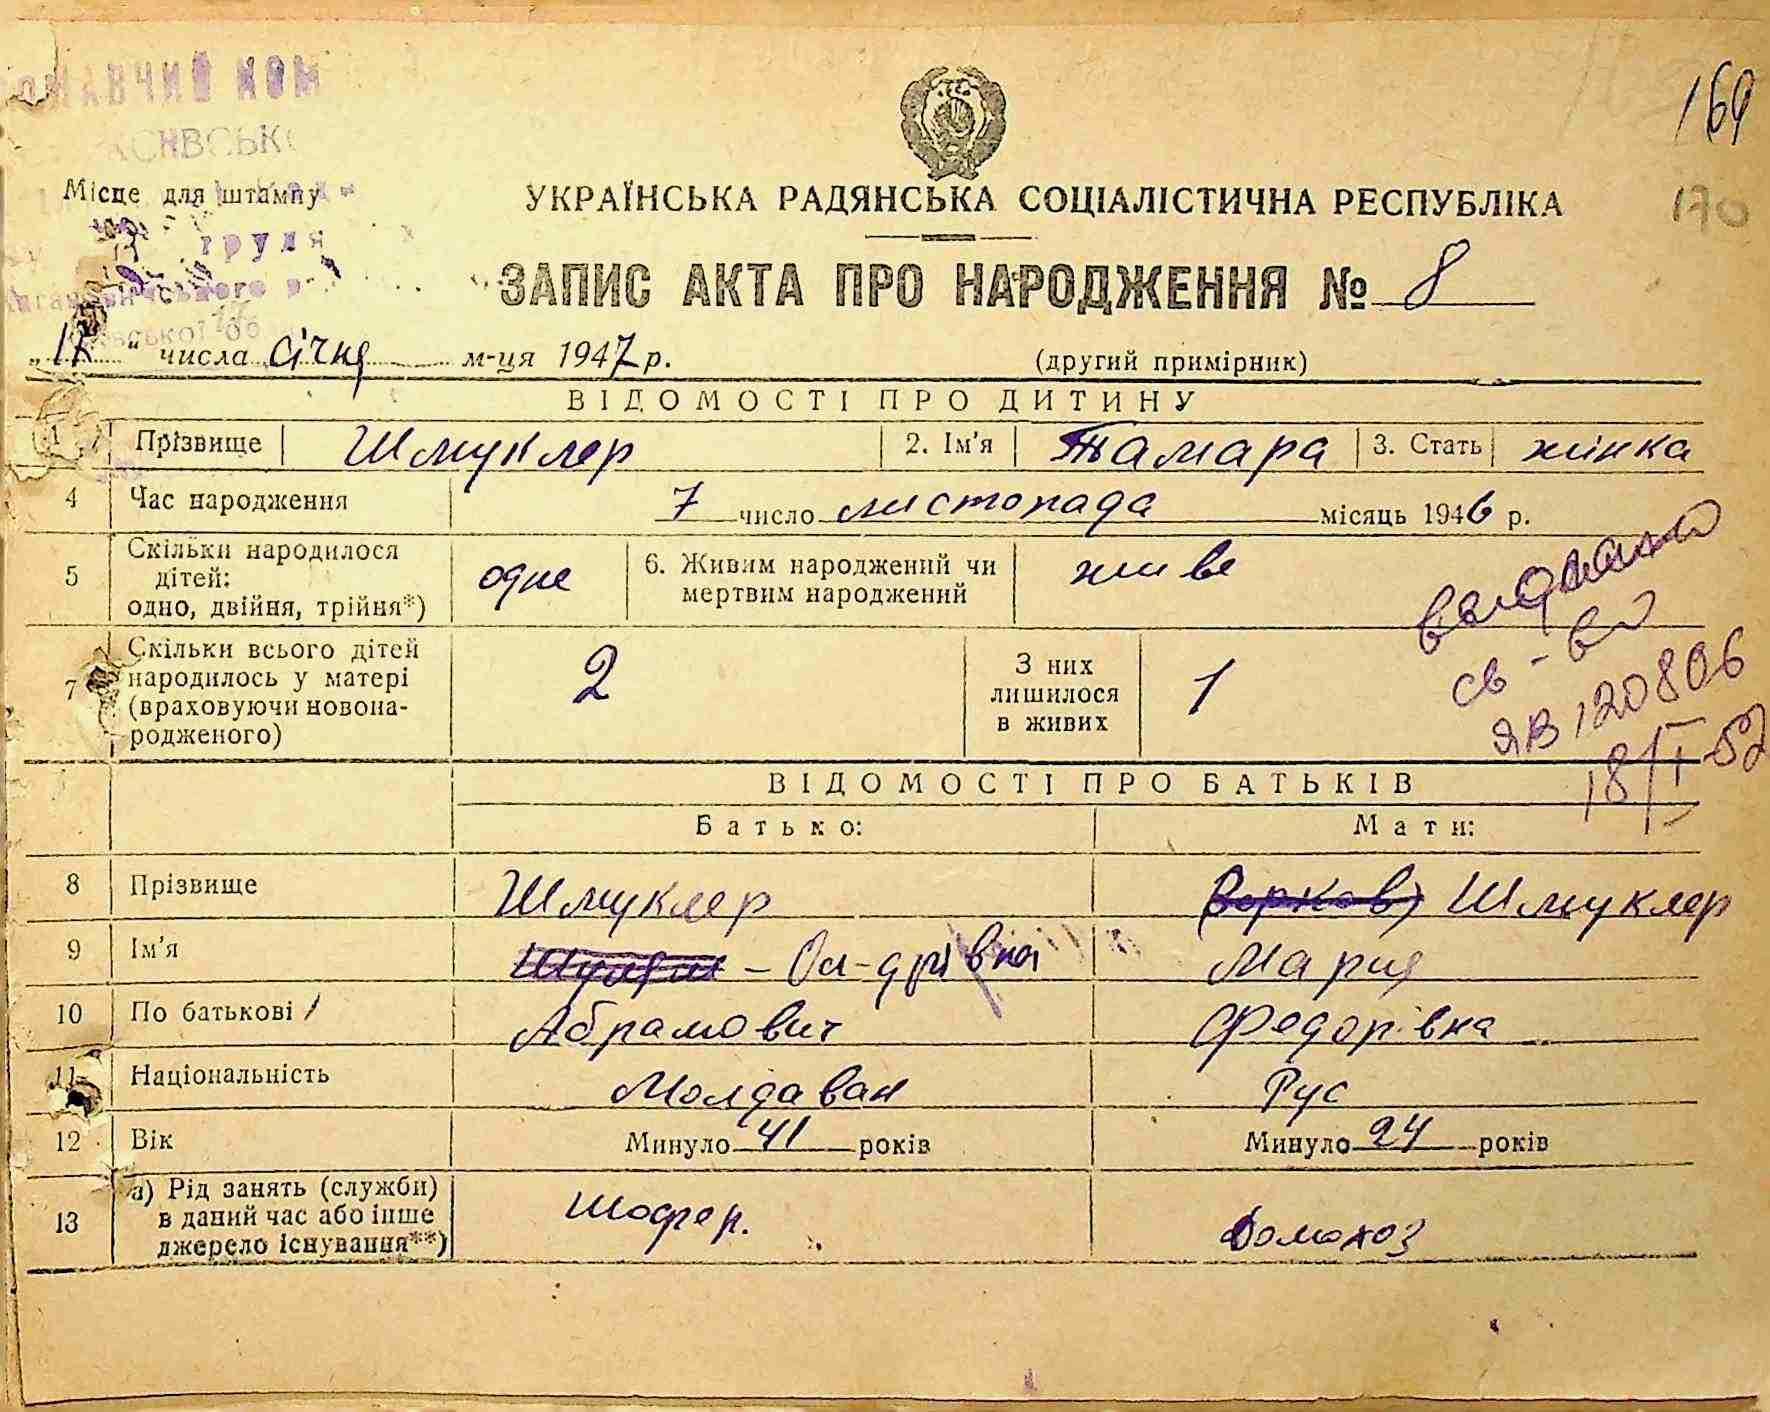 169
170
Місце для штампу
трудя
УКРАЇНСЬКА РАДЯНСЬКА СОЦІАЛІСТИЧНА РЕСПУБЛІКА
ЗАПИС АКТА ПРО НАРОДЖЕННЯ № 8
числа січня м-ця 1947 р.
(другий примірник)
ВІДОМОСТІ ПРО ДИТИНУ
1 Прізвище Шмуклер 2. Ім'я Тамара 3. Стать жінка
4 Час народження 7 число листопада місяць 1946 р.
5 Скільки народилося дітей: одно, двійня, трійня*) одне 6. Живим народжений чи мертвим народжений живе
7 Скільки всього дітей народилось у матері (враховуючи новонародженого) 2 З них лишилося в живих 1
выдано
св-во
ЯВ 120806
18/I-52
ВІДОМОСТІ ПРО БАТЬКІВ
Батько: Мати:
8 Прізвище Шмуклер Шмуклер
9 Ім'я Мария
10 По батькові Абрамович Федорівна
11 Національність Молдаван Рус
12 Вік Минуло 41 років Минуло 24 років
13 а) Рід занять (служби) в даний час або інше джерело існування**) Шофер. Домохоз